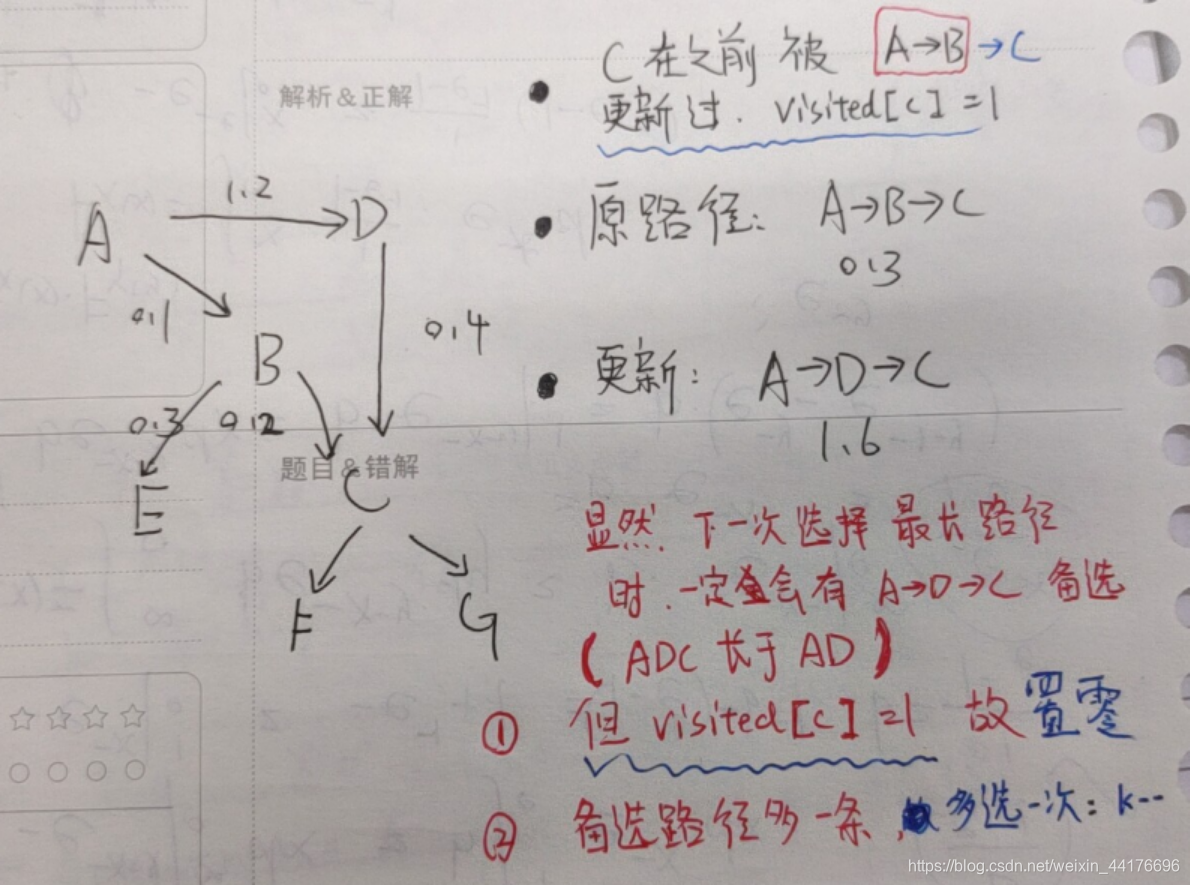 解析&正解
C 在之前 被 A→B→C
更新过. visited[c]=1
原路径: A→B→C
0.3
更新: A→D→C
1.6
1.2
A
D
0.1
B
0.4
0.3
0.2
E
题目&错解
C
F
G
显然. 下一次选择 最长路径
时.一定会有 A→D→C 备选
(ADC 长于 AD)
① 但 visited[c]=1 故置零
② 备选路径多一条, 多选一次: k--
https://blog.csdn.net/weixin_44176696